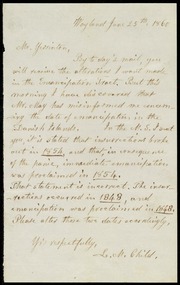 Wayland Jan. 25th, 1860
Mr. Yerrinton,
By to day's mail, you
will receive the alterations I want made
in the Emancipation tract. But this
morning I have discovered that
Mr. May has misinformed me concern-
ing the date of emancipation in the
Danish Islands. In the M.S. I sent
you, it is stated that insurrection broke
out in 1854, and that in consequence
of the panic, immediate emancipation
was proclaimed in 1854.
That statement is incorrect. The insur-
rection occurred in 1848, and
emancipation was proclaimed in 1848.
Please alter these two dates accordingly.
Yrs respectfully,
L. M. Child.